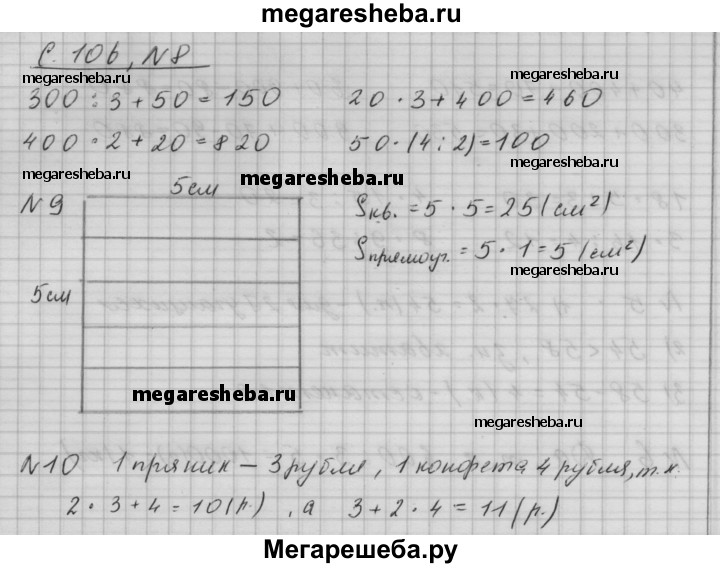 megaresheba.ru
С. 106, N8
megaresheba.ru
megaresheba.ru
300 : 3 + 50 = 150
20 · 3 + 400 = 460
400 · 2 + 20 = 820
50 · (4 : 2) = 100
megaresheba.ru
megaresheba.ru
megaresheba.ru
N9
5см
Sкв. = 5 · 5 = 25 (см²)
Sпрямоуг. = 5 · 1 = 5 (см²)
megaresheba.ru
5см
megaresheba.ru
megaresheba.ru
N10 1 пряник – 3 рубля, 1 конфета 4 рубля, т.к.
2 · 3 + 4 = 10 (р.), а 3 + 2 · 4 = 11 (р.)
Мегарешеба.ру